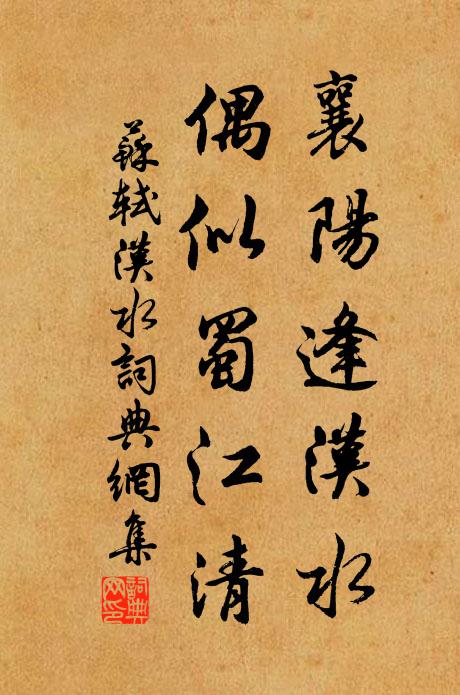 襄陽逢漢水
偶似蜀江清
蘇軾漢水詞典網集
詞典網印